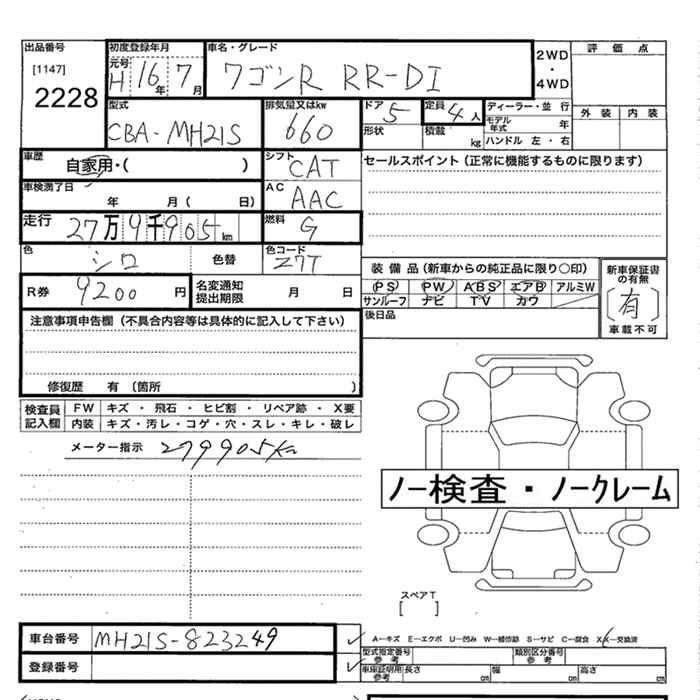 出品番号 初度登録年月 車名・グレード 2WD・4WD 評価点
[1147] 元号 H 16年 7月 ワゴンR RR-DI
2228
型式 排気量又はkw ドア 定員 ディーラー・並行 外装 内装
CBA-MH21S 660 5 4人 モデル年式 年
形状 積載 kg ハンドル 左・右
車歴 自家用・( ) シフト CAT セールスポイント(正常に機能するものに限ります)
車検満了日 年 月( 日) AC AAC
走行 27万9千905km 燃料 G
色 シロ 色替 色コード Z7T 装備品(新車からの純正品に限り〇印) 新車保証書の有無
R券 9200円 名変通知提出期限 月 日 PS PW ABS エアB アルミW (有)
サンルーフ ナビ TV カワ 車載不可
注意事項申告欄(不具合内容等は具体的に記入して下さい) 後日品
修復歴 有(箇所 )
検査員記入欄 FW キズ・飛石・ヒビ割・リペア跡・X要
内装 キズ・汚レ・コゲ・穴・スレ・キレ・破レ
メーター指示 279905Km
ノー検査・ノークレーム
スペアT
[ ]
車台番号 MH21S-823249 A—キズ E—エクボ U—凹み W—補修跡 S—サビ C—腐食 X,XX—交換済
登録番号 型式指定番号 参考 類別区分番号 参考
車庫証明用参考 長さ cm 幅 cm 高さ cm